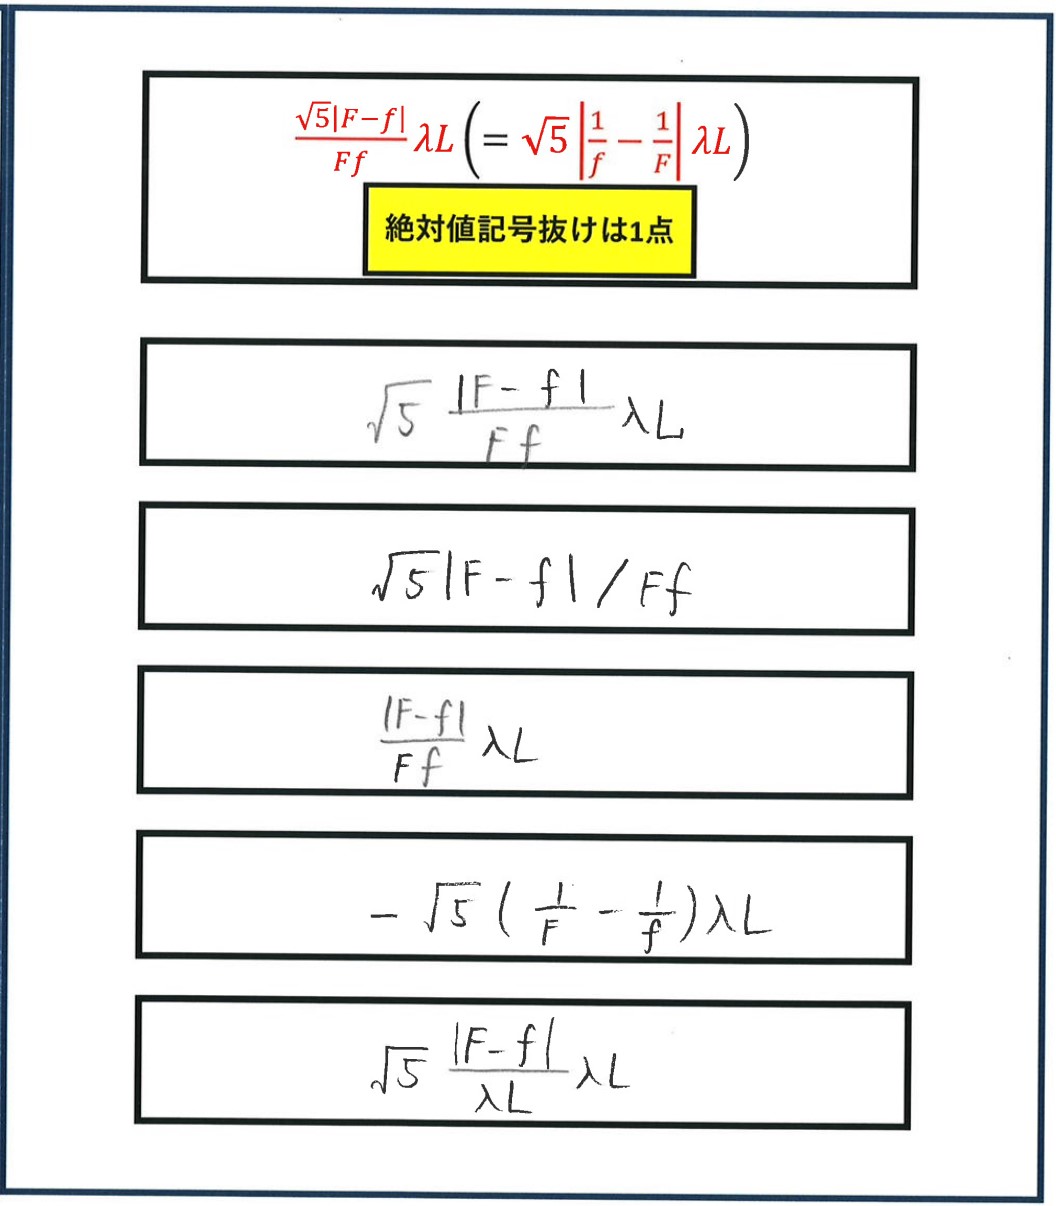 √5|F−f|/Ff λL (= √5 |1/f − 1/F| λL)
絶対値記号抜けは1点
√5 |F−f|/Ff λL
√5|F−f|/Ff
|F−f|/Ff λL
−√5(1/F − 1/f)λL
√5 |F−f|/λL λL